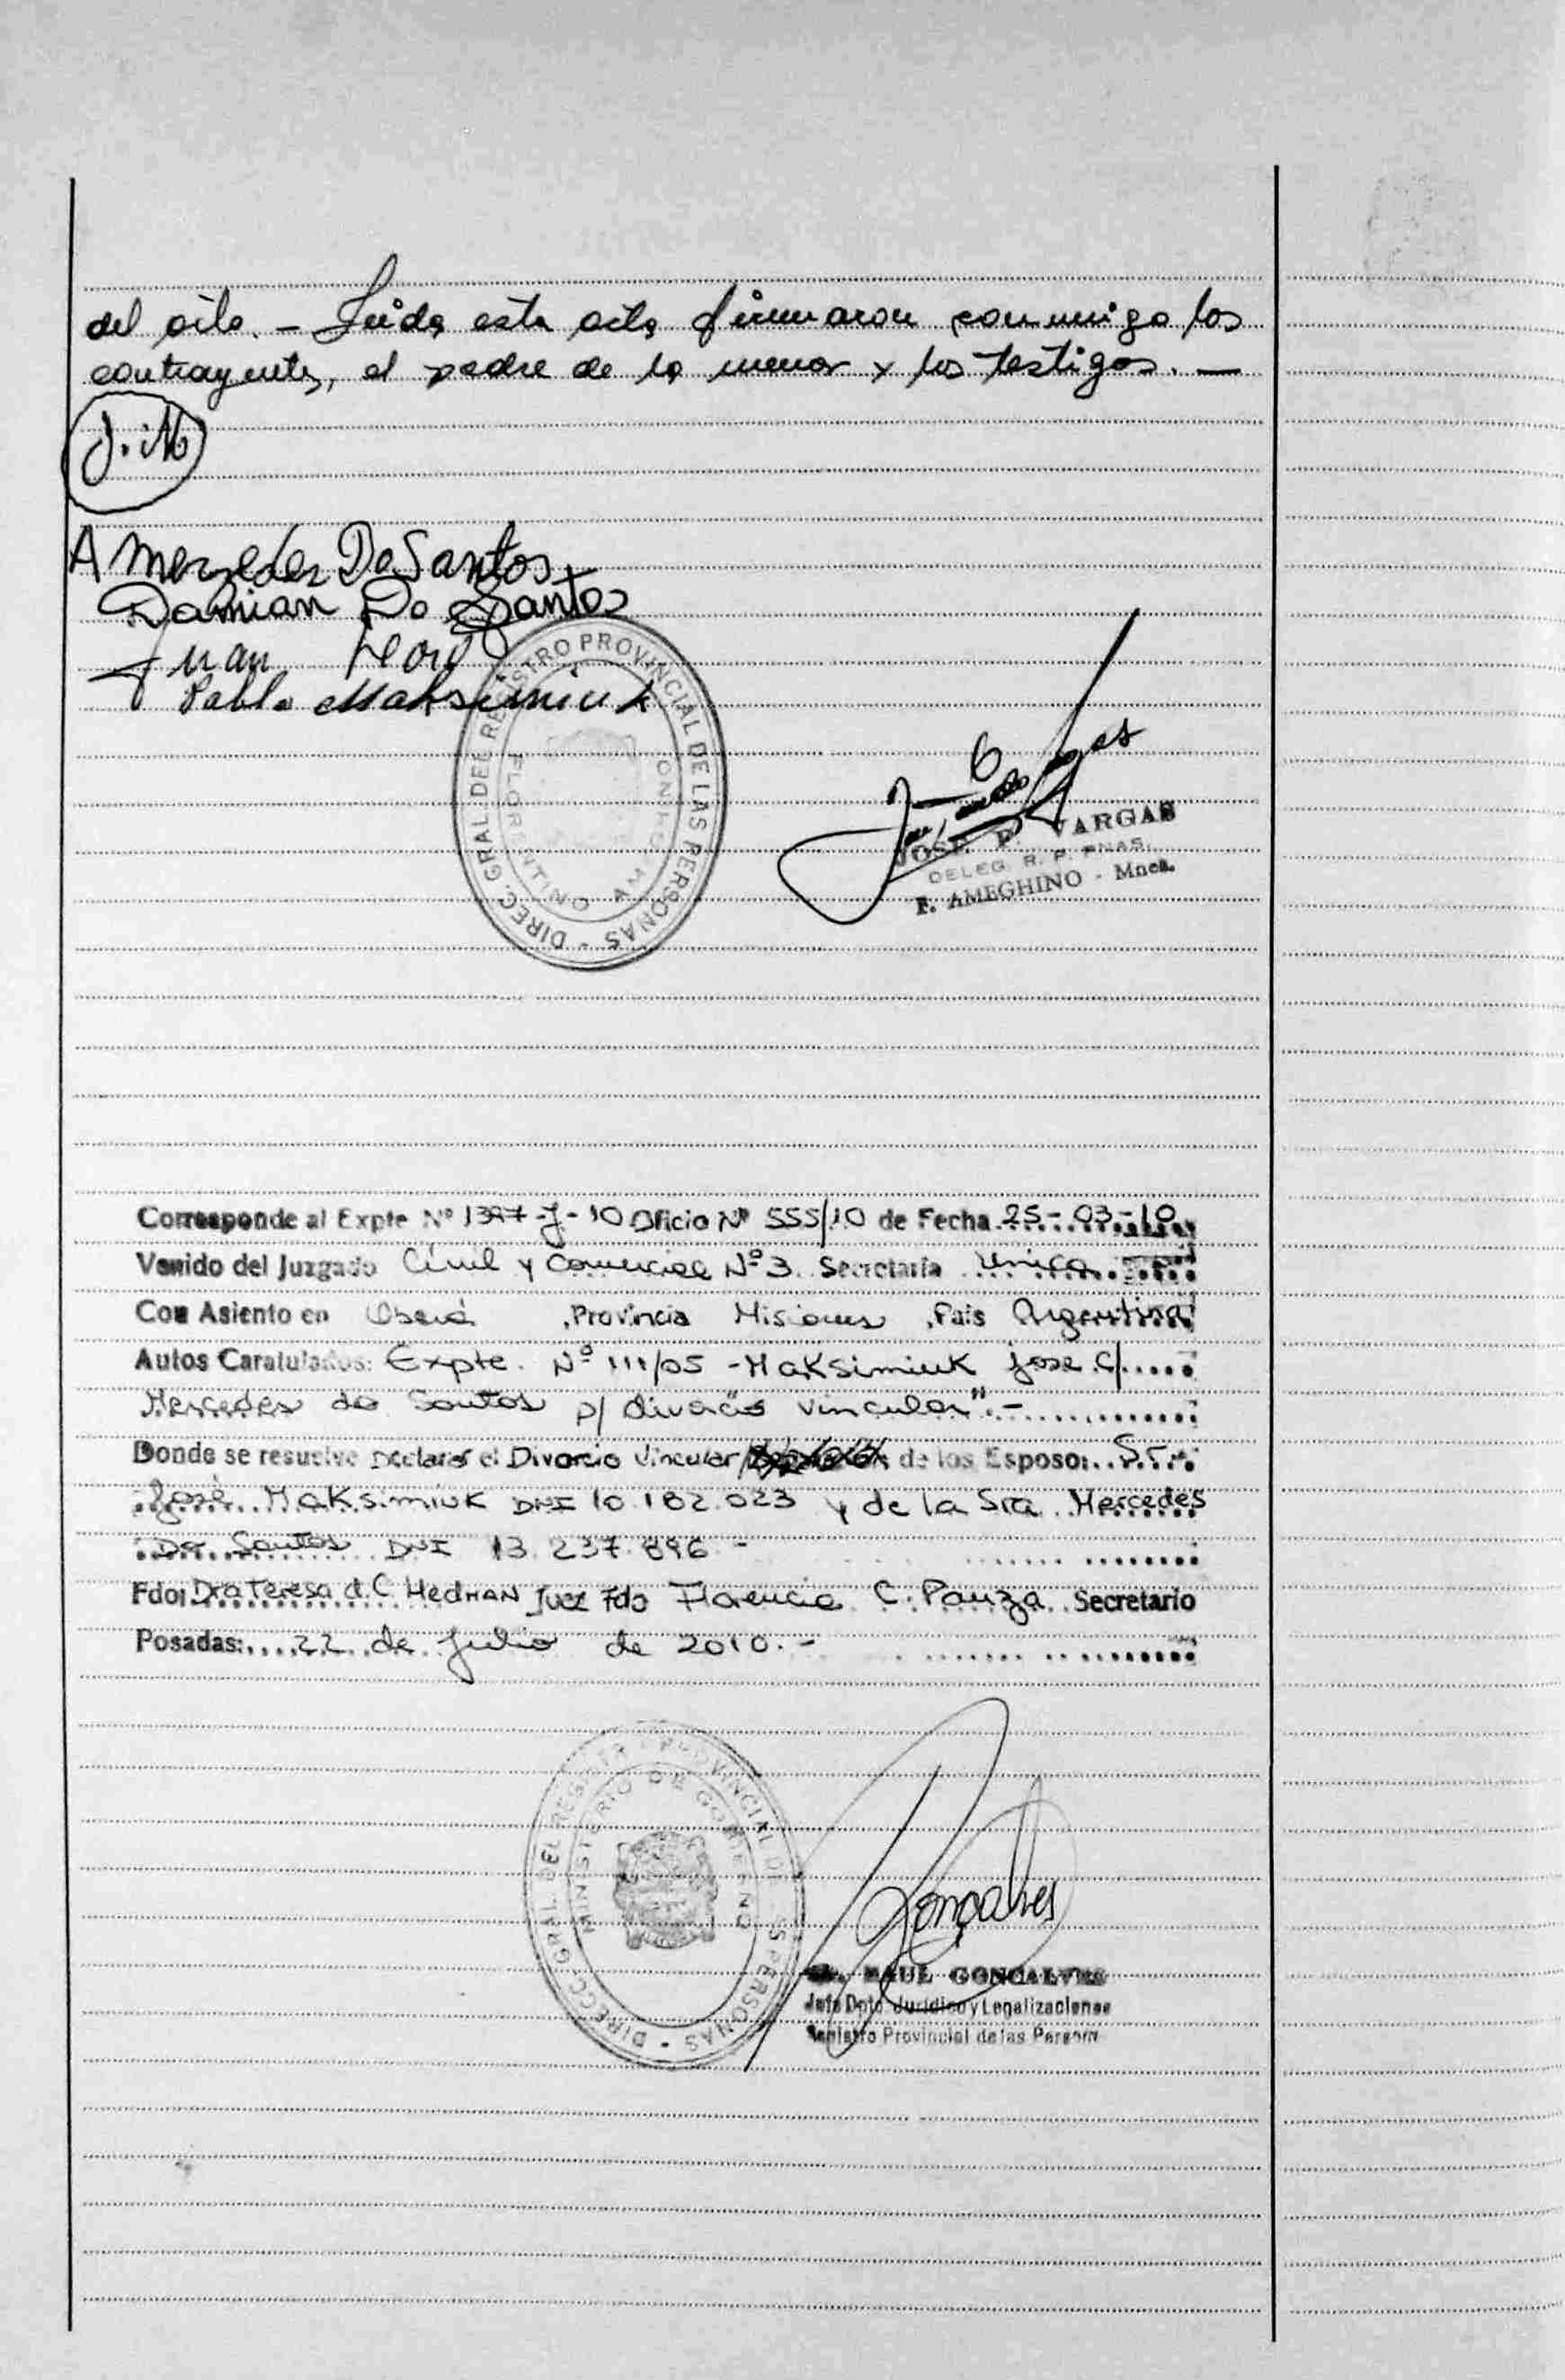 del acto. - Leída esta acta firmaron conmigo los
contrayentes, el padre de la menor y los testigos. —
J.M
A Mercedes Do Santos
Damian Do Santos
Juan
Pablo Maksimiuk
DIREC. GRAL. DEL REGISTRO PROVINCIAL DE LAS PERSONAS -
FLORENTINO AMEGHINO
JOSE F. VARGAS
DELEG. R. P. PNAS.
F. AMEGHINO - Mnes.
Corresponde al Expte Nº 1397-J-10 Oficio Nº 555/10 de Fecha 25-03-10
Venido del Juzgado Civil y Comercial Nº 3. Secretaría Unica
Con Asiento en Oberá ,Provincia Misiones ,Pais Argentina
Autos Caratulados: Expte. Nº 111/05 - Maksimiuk Jose c/
Mercedes do Santos p/ divorcio vincular".-
Donde se resuelve Declarar el Divorcio Vincular de los Esposos Sr.
José Maksimiuk DNI 10.182.023 y de la Sra. Mercedes
Do Santos DNI 13.237.896 -
Fdo: Dra Teresa d.C HEDMAN Juez Fdo Florencia C. Pauza. Secretario
Posadas: 22 de Julio de 2010.-
DIRECC. GRAL. DEL REGISTRO PROVINCIAL DE LAS PERSONAS -
MINISTERIO DE GOBIERNO
Goncalves
RAUL GONCALVES
Jefe Dpto. Jurídico y Legalizaciones
Registro Provincial de las Personas